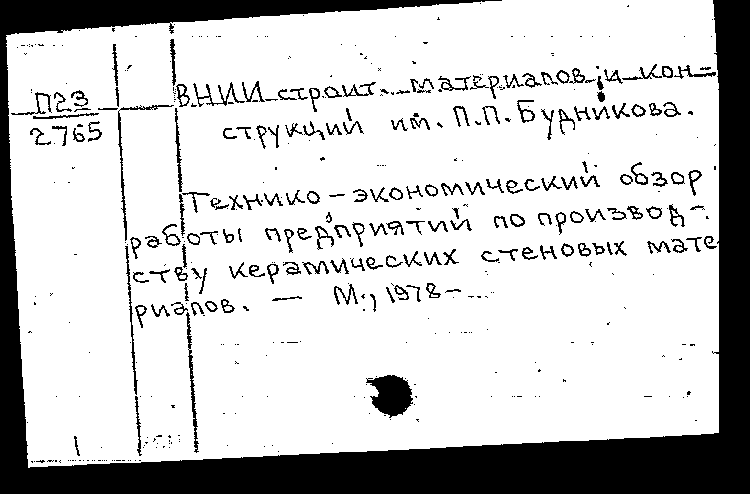 П23
2765
ВНИИ строит. материалов и кон-
струкций им. П.П. Будникова.
Технико-экономический обзор
работы предприятий по производ-
ству керамических стеновых мате
риалов. — М., 1978-